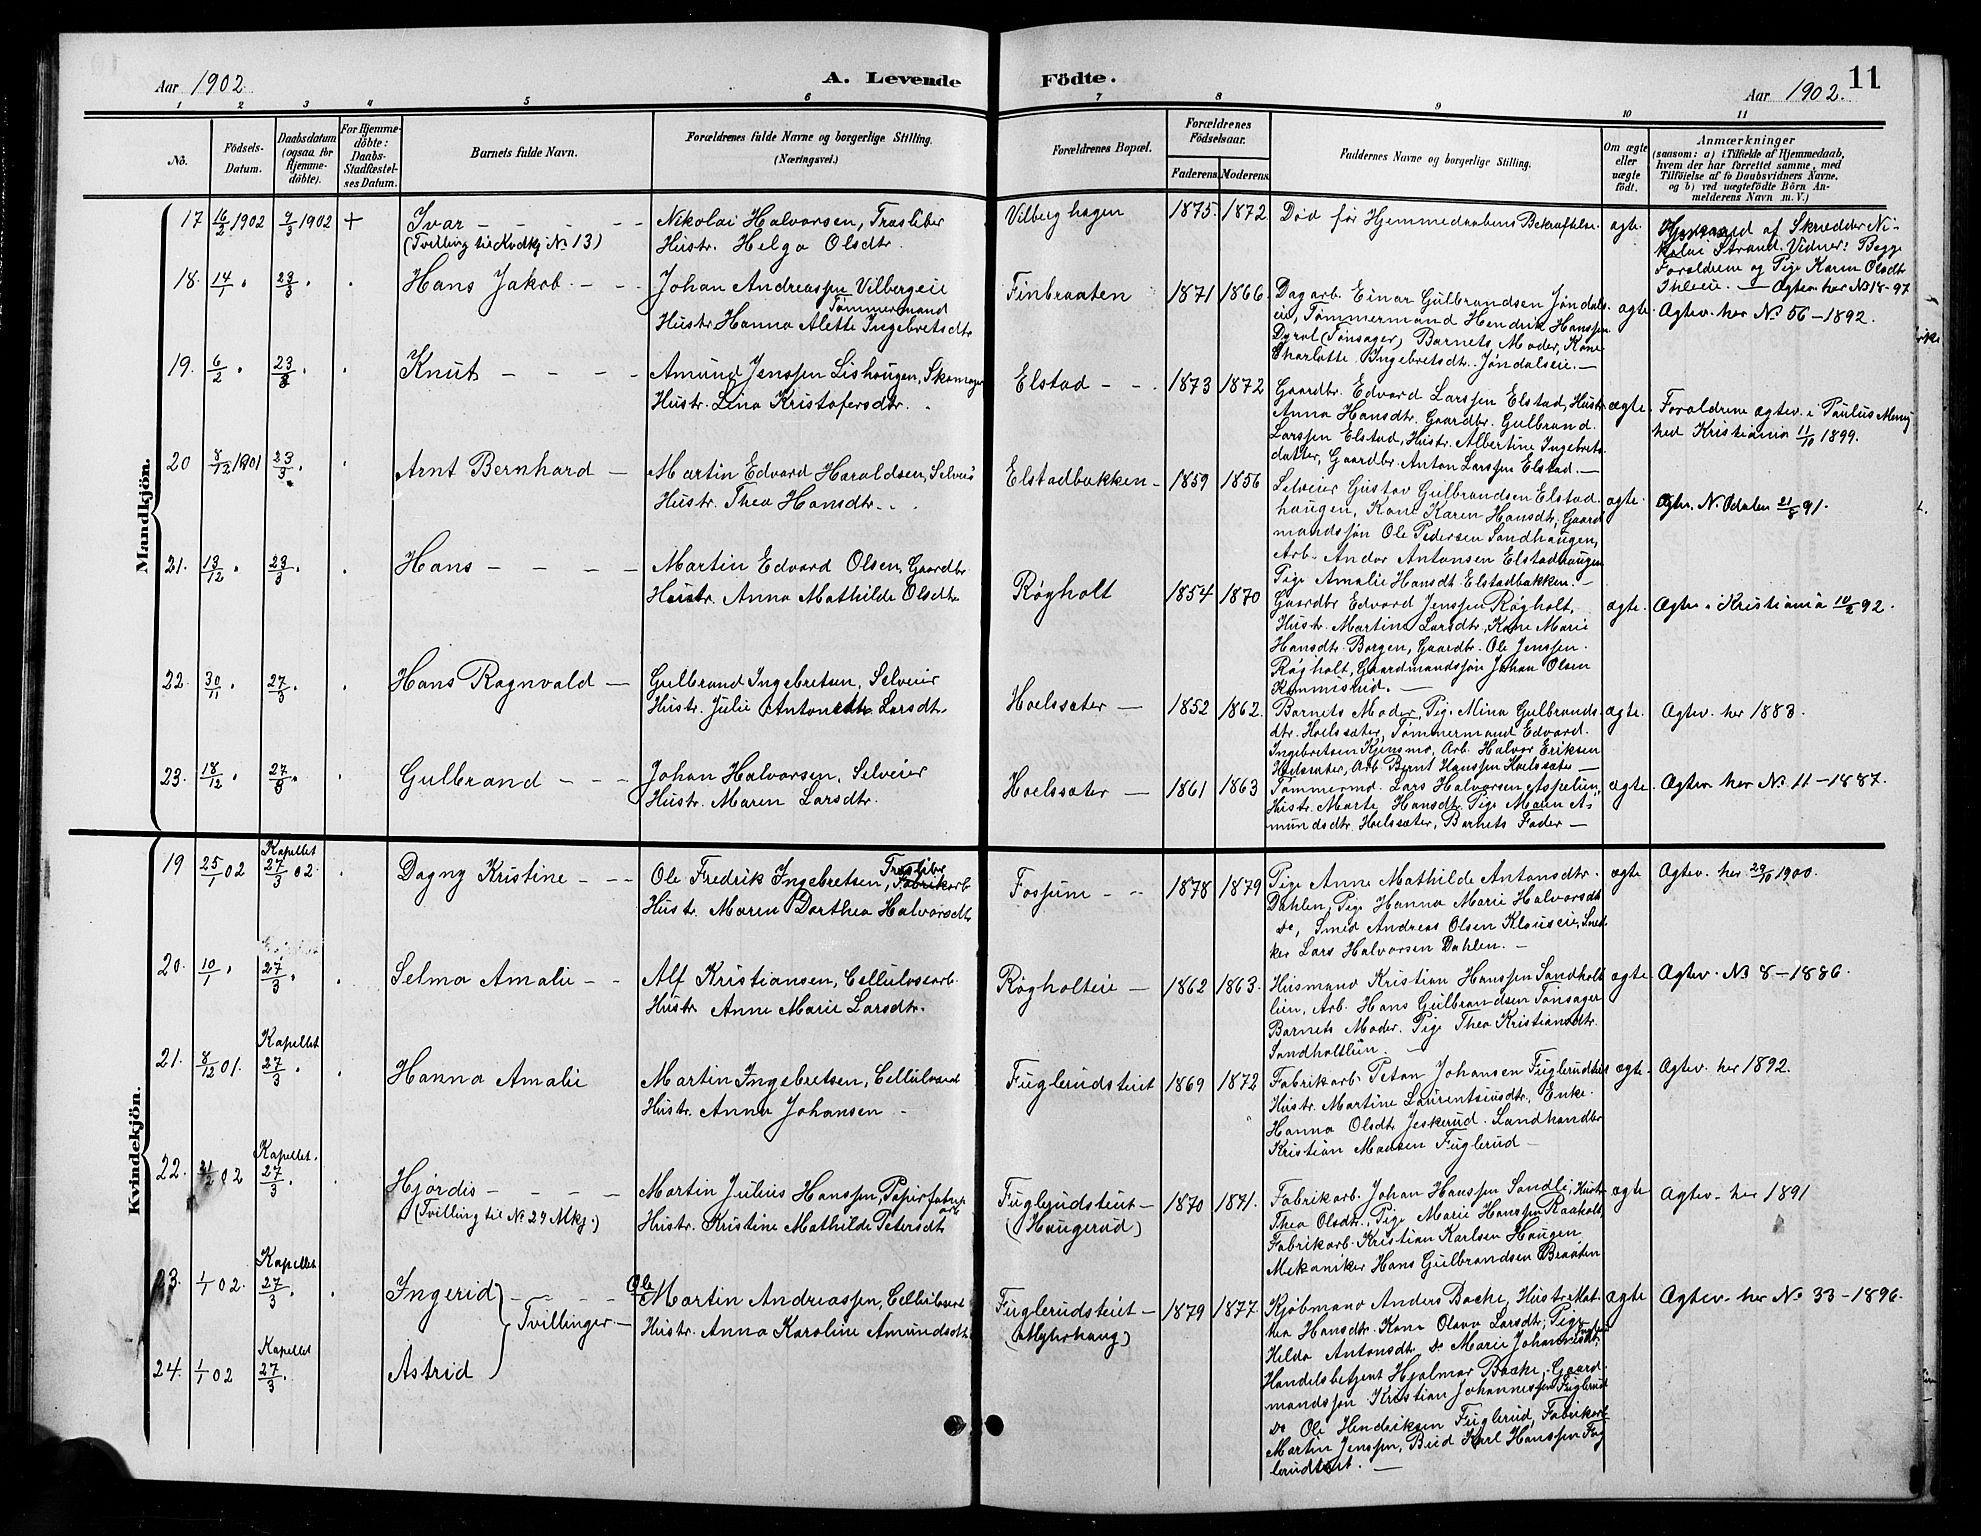 Aar 1902.
A. Levende Födte.
Aar 1902.
11
1 2 3 4 5 6 7 8 9 10 11
No.
Födsels-
Datum.
Daabsdatum
(ogsaa for
Hjemme-
döbte).
For Hjemme-
döbte:
Daabs-
Stadfæstel-
ses Datum.
Barnets fulde Navn.
Forældrenes fulde Navne og borgerlige Stilling.
(Næringsvei.)
Forældrenes Bopæl.
Forældrenes
Födselsaar.
Faderens.
Moderens.
Faddernes Navne og borgerlige Stilling.
Om ægte
eller
uægte
födt.
Anmærkninger
(saasom: a) i Tilfælde af Hjemmedaab,
hvem der har forrettet samme, med
Tilföielse af to Daabsvidners Navne,
og b) ved uægtefödte Börn An-
melderens Navn m. V.)
Mandkjön.
17 16/2 1902 9/3 1902 + Ivar - - - -
(Tvilling til Kvdkj No 13)
Nikolai Halvorsen, Trasliber
Hustr. Helga Olsdtr.
Vilberghagen 1875. 1872
Död för Hjemmedaabens Bekræftelse. ægte.
af Skrædder Ni-
kolai Strand. Vidner: Begge
Forældrene og Pige Karen Olsdtr
Ihleeie. — Ægtev. her No 18-97
18. 14/1 " 23/3 . . Hans Jakob - -
Johan Andreassen Vilbergeie
Tømmermand
Hustr Hanna Alette Ingebretsdtr
Finbraaten 1871 1866
Dagarb. Einar Gulbrandsen Jöndals
eie, Tömmermand Hendrik Hanssen
Dyrol (Tonsager) Barnets Moder, Kone
Charlotte Ingebretsdtr. Jöndalseie. —
ægte. Ægtev. her No 56 - 1892.
19. 6/2 " 23/3 . . Knut - - - -
Amund Jenssen Lishaugen, Skomager
Hustr. Lina Kristofersdtr.
Elstad - - 1873 1872
Gaardbr. Edvard Larssen Elstad, Hustr
Anna Hansdtr. Gaardbr. Gulbrand
Larssen Elstad, Hustr. Albertine Ingebrets
datter, Gaardbr. Anton Larssen Elstad. —
ægte. Forældrene ægtev. i Paulus Menig
hed Kristiania 11/10 1899.
20 8/12 1901 23/3 . Arnt Bernhard —
Martin Edvard Haraldsen, Selveier
Hustr. Thea Hansdtr. . .
Elstadbakken - 1859 1856
Selveier Gustav Gulbrandsen Elstad
haugen, Kone Karen Hansdtr, Gaard
mandssön Ole Pedersen Sandhaugen,
Arb. Andor Antonsen Elstadhaugen
Pige Amalie Hansdt. Elstadbakken. —
ægte. Ægtev. N. Odalen 21/8 91.
21. 13/12 " 23/3 . . Hans - - - -
Martin Edvard Olsen, Gaardbr
Hustr. Anna Mathilde Olsdtr
Røgholt 1854 1870
Gaardbr Edvard Jenssen Røgholt,
Hustr. Martina Larsdtr, Kone Marie
Hansdtr. Borgen, Gaardbr. Ole Jenssen.
Røgholt, Gaardmandssön Johan Olsen
Kammisrud. —
ægte. Ægtev i Kristiania 10/2 92.
22. 30/11 " 27/3 . . Hans Ragnvald —
Gulbrand Ingebretsen, Selveier
Hustr. Julie Larsdtr
Hoelssæter — 1852 1862.
Barnets Moder, Pige Mina Gulbrands-
dtr. Hoelssæter, Tømmermand Edvard
Ingebretsen Kjensmo, Arb. Halvor Eriksen
Hoelssæter, Arb Bernt Hanssen Hoelssæter —
ægte. Ægtev. her 1883.
23. 18/12 " 27/3 . . Gulbrand - - -
Johan Halvorsen, Selveier
Hustr. Maren Larsdtr.
Hoelssæter — 1861 1863
Tømmermd. Lars Halvorsen Aspelien,
Hustr. Marte Hansdtr. Pige Maren A-
mundsdtr. Hoelssæter, Barnets Fader —
ægte. Ægtev her No. 11 - 1887.
Kvindekjön.
19 25/1 02 Kapellet 27/3 02. . Dagny Kristine - - -
Ole Fredrik Ingebretsen, Fabrikarb
Træsliber
Hustr. Maren Dorthea Halvorsdtr
Fossum - - 1878 1879
Pige Anne Mathilde Antonsdtr.
Dahlen, Pige Hanna Marie Halvorsdtr
do, Smed Andreas Olsen Klauseie, Sned-
ker Lars Halvorsen Dahlen. —
ægte Ægtev. her 29/10 1900.
20. 10/1 " 27/3 . . Selma Amalie - -
Alf Kristiansen, Cellulosearb.
Hustr Anne Marie Larsdtr.
Røgholteie — 1862 1863.
Husmand Kristian Hanssen Sandholt
lien, Arb. Hans Gulbrandsen Tonsager
Barnets Moder. Pige Thea Kristiansdtr.
Sandholtlien. —
ægte Ægtev. No 8 - 1886.
21. 8/12 01. Kapellet 27/3 . . Hanna Amalie
Martin Ingebretsen, Cellulosearb
Hustr. Anna Johansen -
Fuglerudsteiet 1869 1872
Fabrikarb. Johansen Fuglerudteiet
Hustr. Martine Laurentsiusdtr. Enke
Hanna Olsdtr Jeskerud. Landhandler
Kristian Madsen Fuglerud —
ægte - Ægtev. her 1892.
22. 21/2 02 Kapellet. 27/3 . . Hjørdis - - - -
(Tvilling til No 24 Mkj.)
Martin Julius Hanssen, Papirfabrik
arb
Hustr. Kristine Mathilde Petersdtr
Fuglerudsteiet —
(Haugerud)
1870 1871.
Fabrikarb. Johan Hanssen Sandli, Hustr
Thea Olsdtr, Pige Marie Hanssen Raaholt,
Fabrikarb. Kristian Karlsen Haugen
Mekaniker Hans Gulbrandsen Braaten
ægte Ægtev. her 1891
23. 1/1 02. Kapellet 27/3 . Ingerid
Tvillinger —
Ole Martin Andreassen, Cellulosearb
Hustr. Anna Karoline Amundsdtr
Fuglerudsteiet —
(Myhrhaug)
1879 1877.
Kjøbmand Anders Bache, Hustr Mat-
hea Hansdtr. Kone Olava Larsdtr; Pige
Hilda Antonsdt. Do Marie Johannesdtr,
Handelsbetjent Hjalmar Bache, Gaard-
mandssön Kristian Johannessen Fuglerud
Do Ole Hendriksen Fuglerud, Fabrikarb
Martin Jenssen, Bud Karl Hanssen Fug
lerudteiet. —
ægte Ægtev. her No 33 - 1896.
24. 1/1 02 Kapellet 27/3 . Astrid